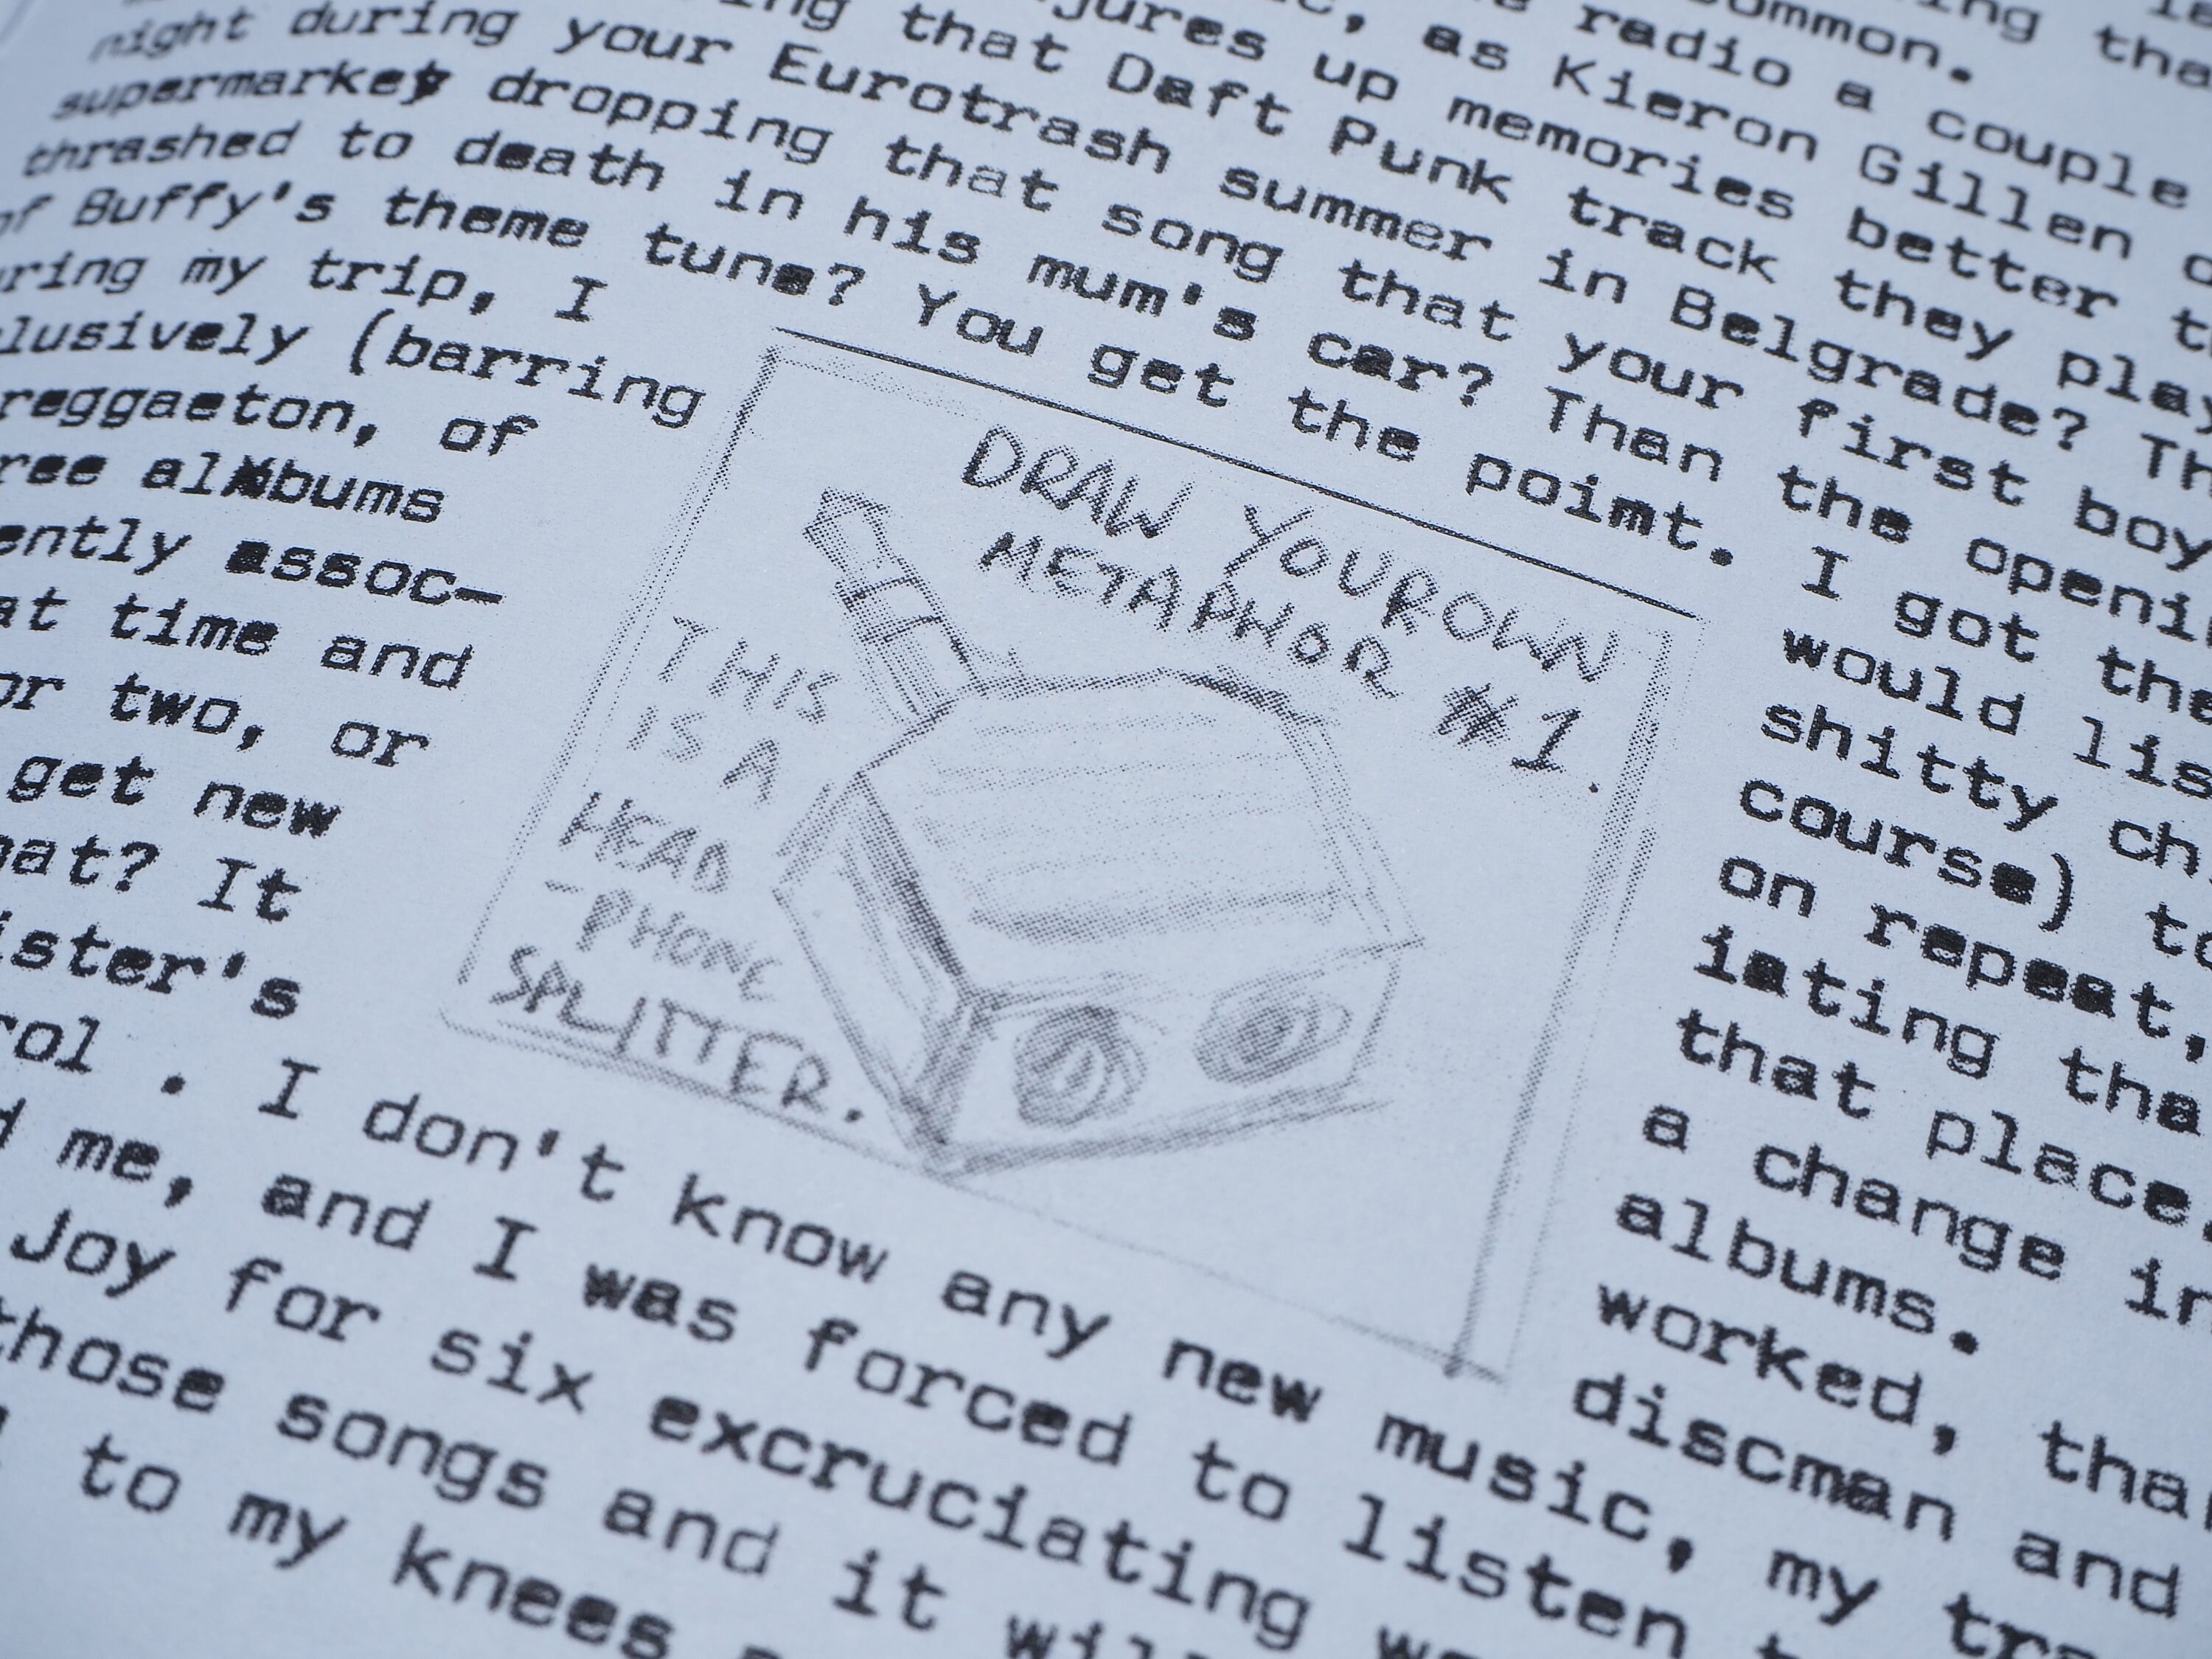 ing tha
ommon.
radio a couple
as Kieron Gillen
jures up memories better
ing that Daft Punk track they play
night during your Eurotrash summer in Belgrade? Th
supermarket dropping that song that your first boy
thrashed to death in his mum's car? Than the openi
of Buffy's theme tune? You get the poimt. I got the
uring my trip, I would lis
lusively (barring shitty ch
reggaeton, of course) to
ree albums on repeat,
ently assoc- iating tha
at time and that place,
or two, or a change in
get new albums.
hat? It worked, tha
ister's discman and
rol . I don't know any new music, my tra
d me, and I was forced to listen t
Joy for six excruciating we
those songs and it wil
to my knees
DRAW YOUR OWN
METAPHOR #1.
THIS
IS A
HEAD
-PHONE
SPLITTER.